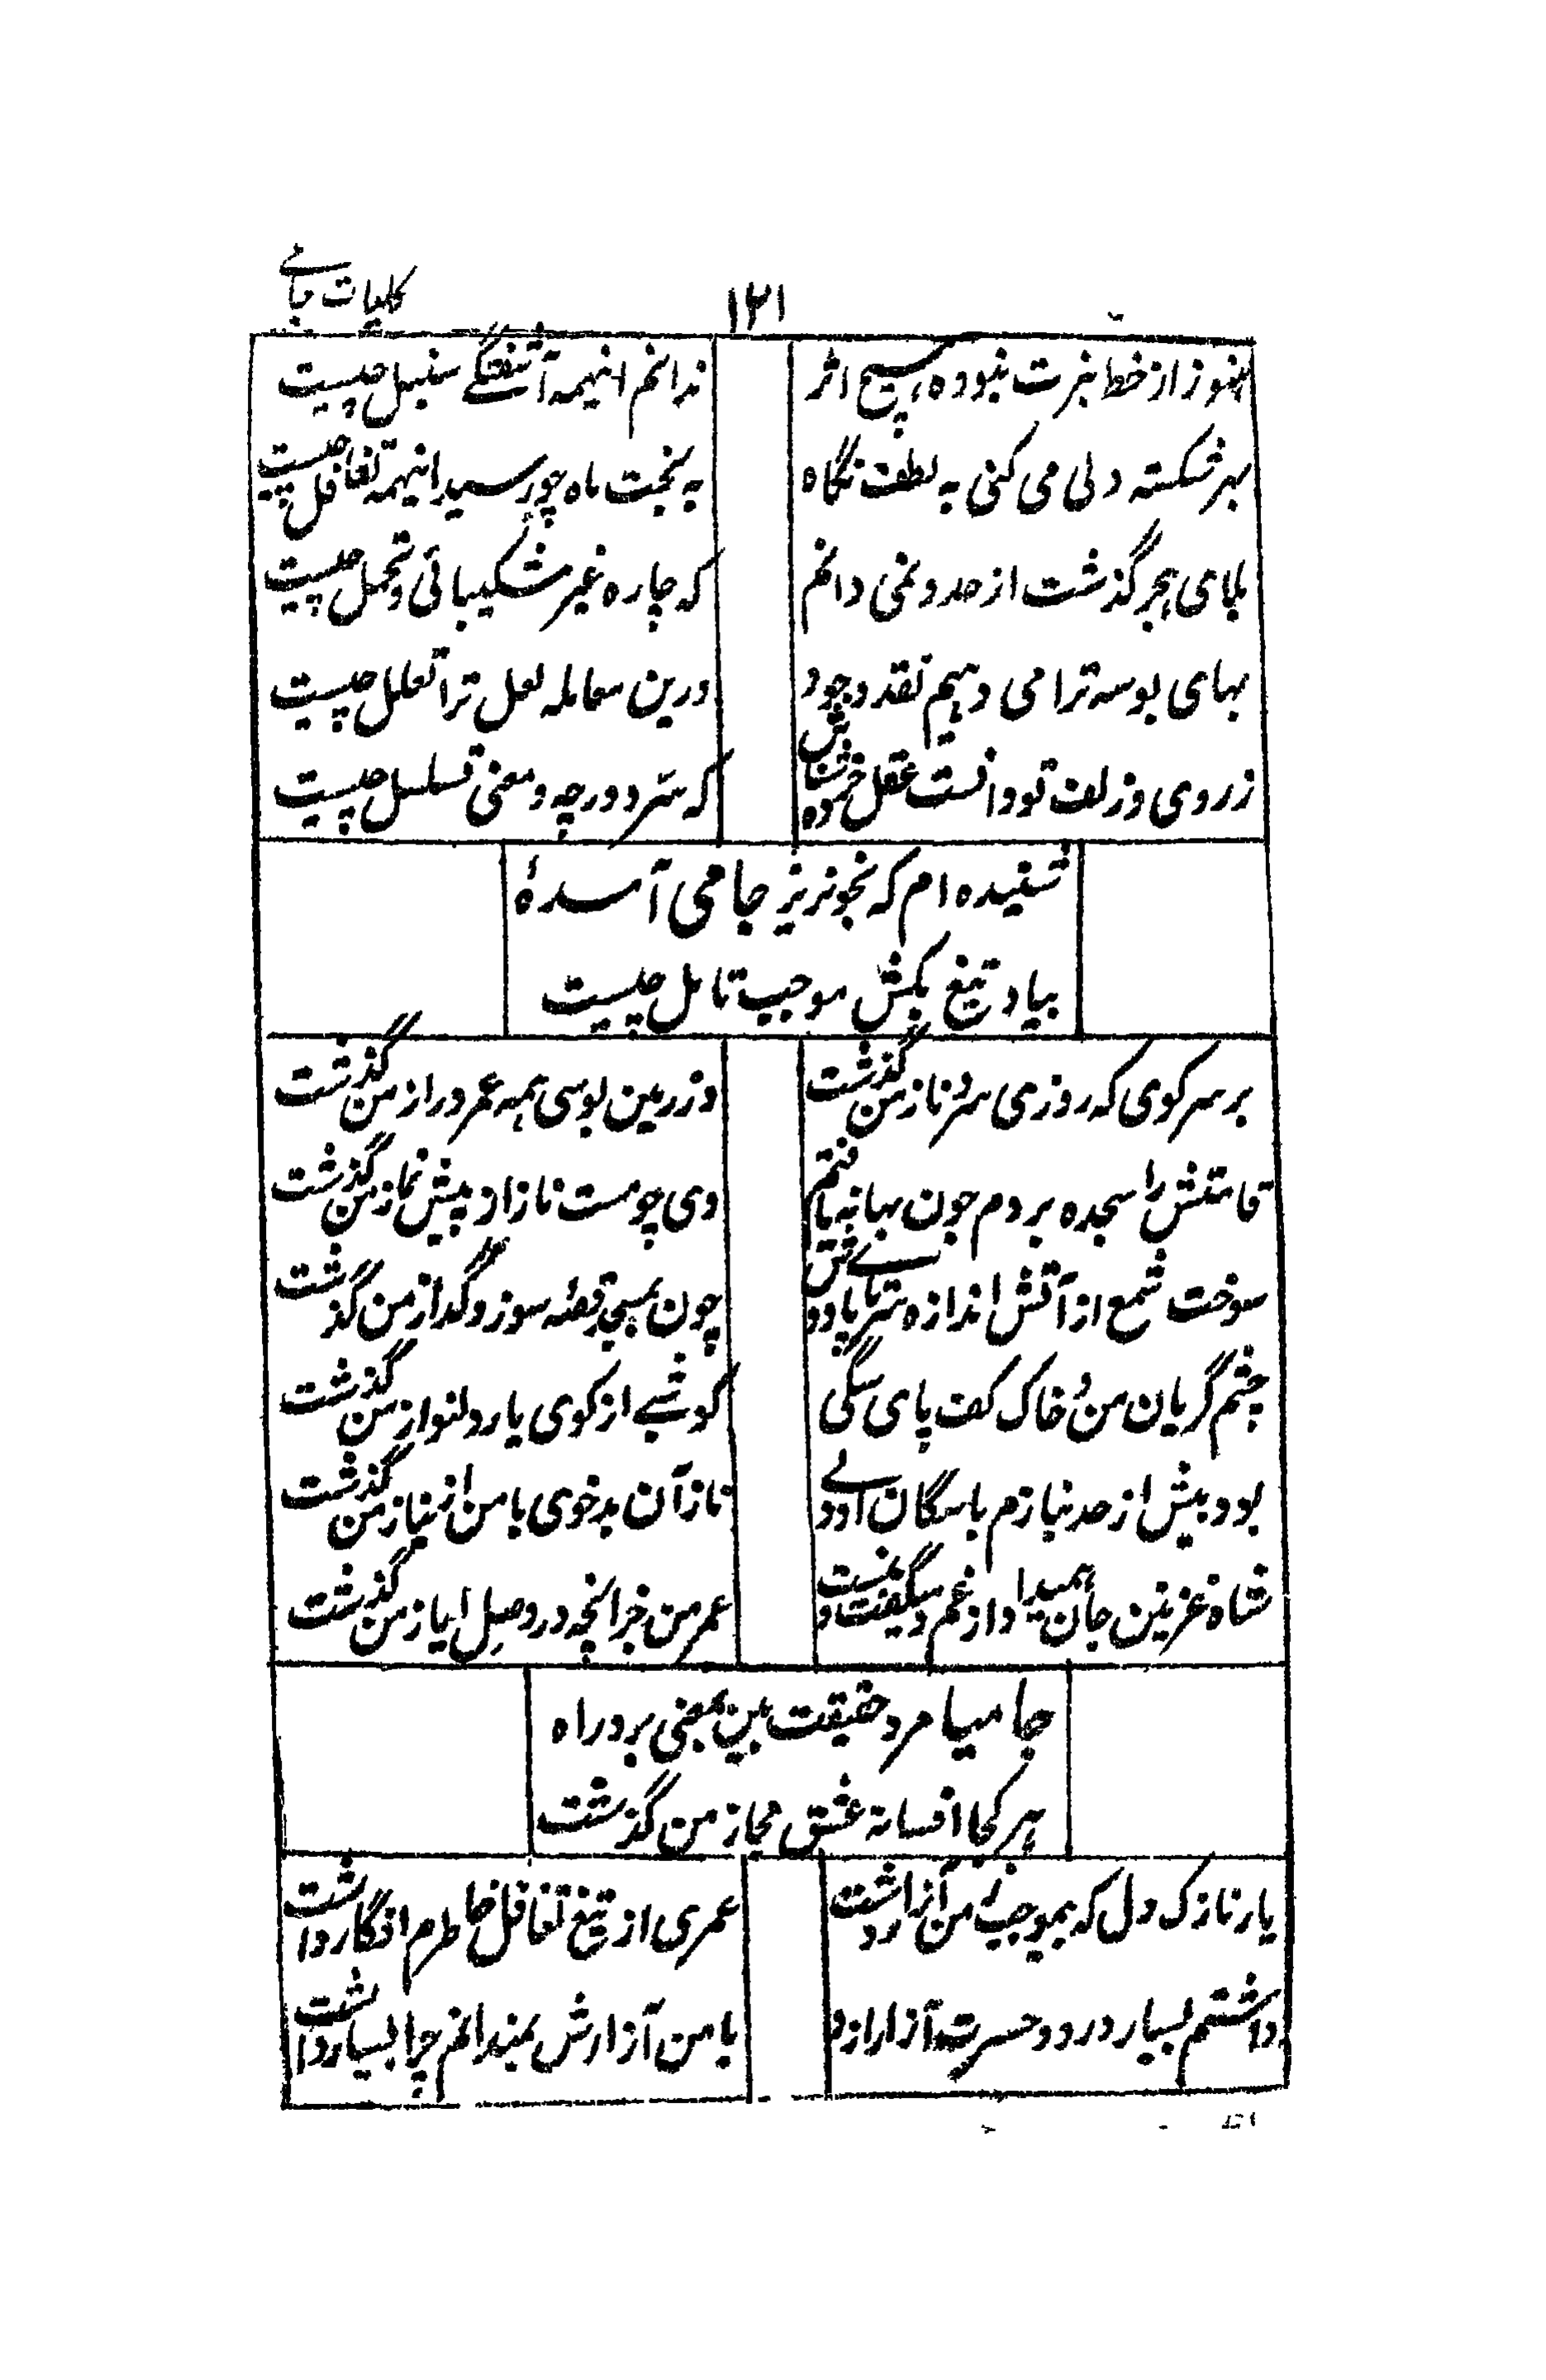 کلیات جامے
۱۲۱
هنوز از خط سبزت نبوده هیچ اثر
ندانم اینهمه آشفتگے سنبل چیست
بهر شکسته دلی می کنی به لطف نگاه
به بخت ماه چو رسید اینهمه تغافل چیست
بلای هجر گذشت از حد و نمی دانم
که چاره غیر شکیبائی و تحمل چیست
بهای بوسه ترا می دهیم نقد وجود
درین معامله لعل ترا تعلل چیست
ز روی و زلف تو دانست عقل خرده شناس
که سر دور چه و معنی تسلسل چیست
شنیده ام که بخونریز جامی آمدۀ
بیا و تیغ بکش موجب تامل چیست
بر سر کوی که روزی سرو ناز من گذشت
در زمین بوسی همه عمر دراز من گذشت
قامتش را سجده بردم چون بهانه یافتم
دی چو مست ناز از پیش نماز من گذشت
سوخت شمع از آتش اندازه سر تا پا
چون بمسجد قصۀ سوز و گداز من گذشت
چشم گریان من و خاک کف پای سگی
کو شبے از کوی یار دلنواز من گذشت
بود بیش از حد نیازم با سگان او ولے
ناز آن بدخوی با من از نیاز من گذشت
شاه غزنین جان همیداد از غم و میگفت
عمر من جز آنچه در وصل ایاز من گذشت
جامیا مرد حقیقت بین بمعنی برد راه
هر کجا افسانه عشق مجاز من گذشت
یار نازک دل که بیموجب ز من آزار داشت
عمری از تیغ تغافل خاطرم افگار داشت
داشتم بسیار درد و حسرت آزار ازو
با من آزارش نمیدانم چرا بسیار داشت